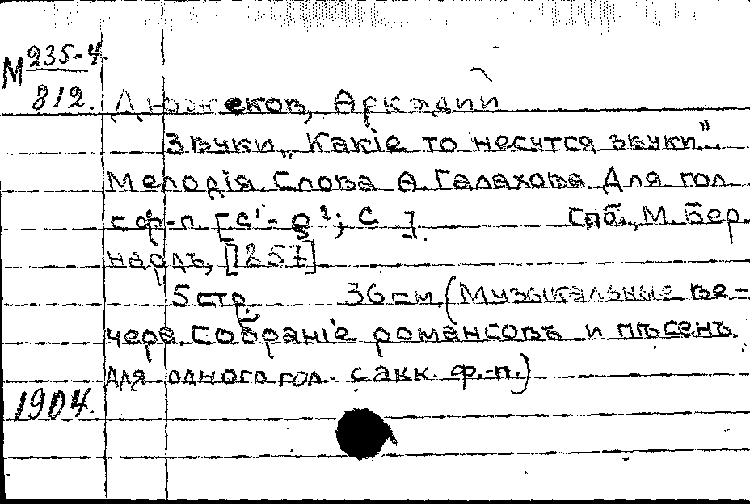 М 235-4
812.
Дюжеков, Аркадий
Звуки "Какіе то несутся звуки".
Мелодія. Слова А. Галахова. Для гол.
с ф-п. [c¹- g²; C]. Спб., М. Бер
нардъ, [1257]
5 стр. 36 см. (Музыкальные ве-
чера. Собраніе романсовъ и пѣсенъ
для одного гол. с акк. ф.-п.)
1904.